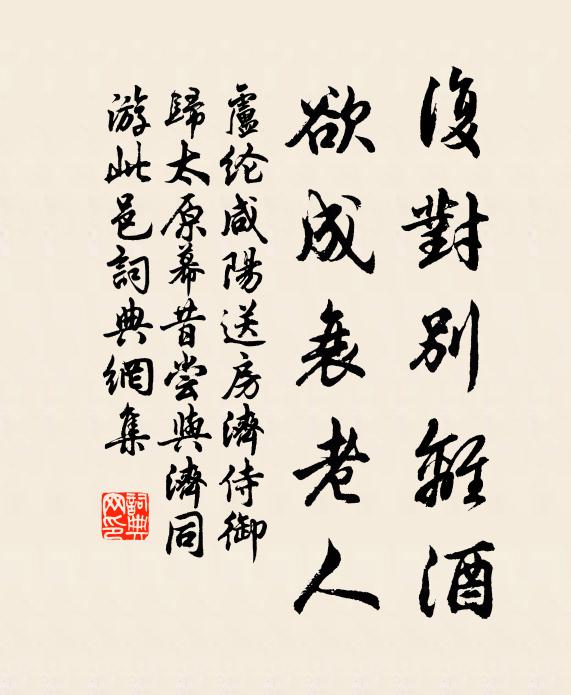 復對別離酒
欲成衰老人
盧纶咸陽送房濟侍御
歸太原幕昔尝與濟同
游此邑詞典網集
詞典网印